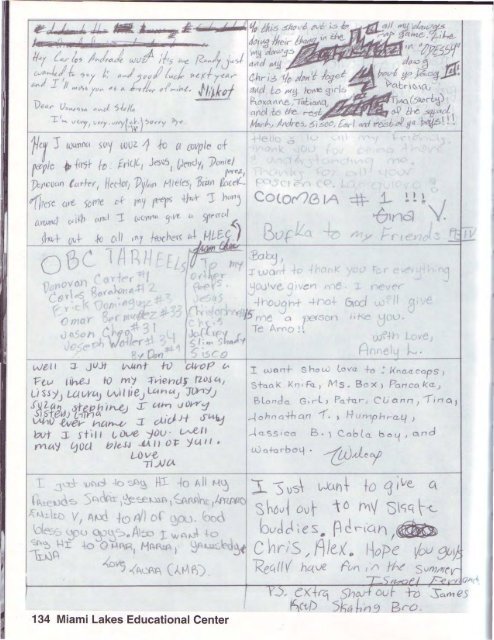 Hey Carlos Andrade wuz^ it's me Randy just
wanted to say hi and good luck next year
and I'll miss you as a brother of mine.
Dear Vanessa and Stella
I'm very, very, very (uh) sorry
Yo this shout out is to all my dawgs
doing their thang in the rap game. Like
my dawgs in "ODESSY"
and my dawg
Chris Yo don't forget bout yo
and to my home girls Patricia,
Roxanne, Tatiana, Tina (Shorty)
and to the rest of the squad
Mark, Andres, Sisco, Earl and rest of ya boys!!!
Hey I wanna say wuz ↑ to a couple of
people first to Erick, Jesus, Wendy, Daniel
Perez,
Donovan Carter, Hector, Dylan Mieles, Brian
These are some of my peeps that I hang
around with and I wanna give a special
shout out to all my teachers at MLEC
from Chino
Thank you for being there
& understanding me,
Thanks for all your
COLOMBIA # 1 !!!
Gina V.
to my Friends
OBC TARHEELS
Donovan Carter #1
Carlos Barahona #2
Erick Dominguez #3
Omar Bermudez #33
Jason Chee #31
Joseph Waller #34
By Don #1
To my
other
Peeps
Jesus
Christopher
Chris
Jeffrey
Slim Shady
Sisco
Baby,
I want to thank you for everything
you've given me. I never
thought that God will give
me a person like you.
Te Amo!!
With Love,
Annely L.
Well I Just want to drop a
Few lines to my friends Rosa,
Lissy, Laura, Willie, Lana, Jerry,
Suzan, Stephine, I am sorry
sister, Tina
who ever name I didn't say
but I still Love you. Well
may God bless all of yall.
LOVE
TINA
I want show love to: Kneecaps,
Steak Knife, Ms. Box, Pancake,
Blonde Girl, Peter, Cuann, Tina,
Johnathan T., Humphrey,
Jessica B., Cable boy, and
Waterboy.
Wilcox
I just want to say HI to All my
Friends Sadri, Yesenia, Sarahi, Arturo
Emilio V, And to All of you. God
bless you guys. Also I want to
say HI to Omar, Maria,
TINA
Love
LAURA (LMB).
I Just want to give a
Shout out to my Skate
buddies. Adrian,
Chris, Alex. Hope you guys
Really have fun in the Summer
Ismael
P.S. extra shout out to James
Keep Skating Bro.
134 Miami Lakes Educational Center